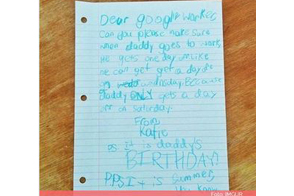 Dear google worker
Can you please make sure
when daddy goes to work,
he gets one day
he can get a day
on Because
Daddy ONLY gets a day
on Saturday
From
Katie
It is daddy's
BIRTHDAY!
PPS It is summer,